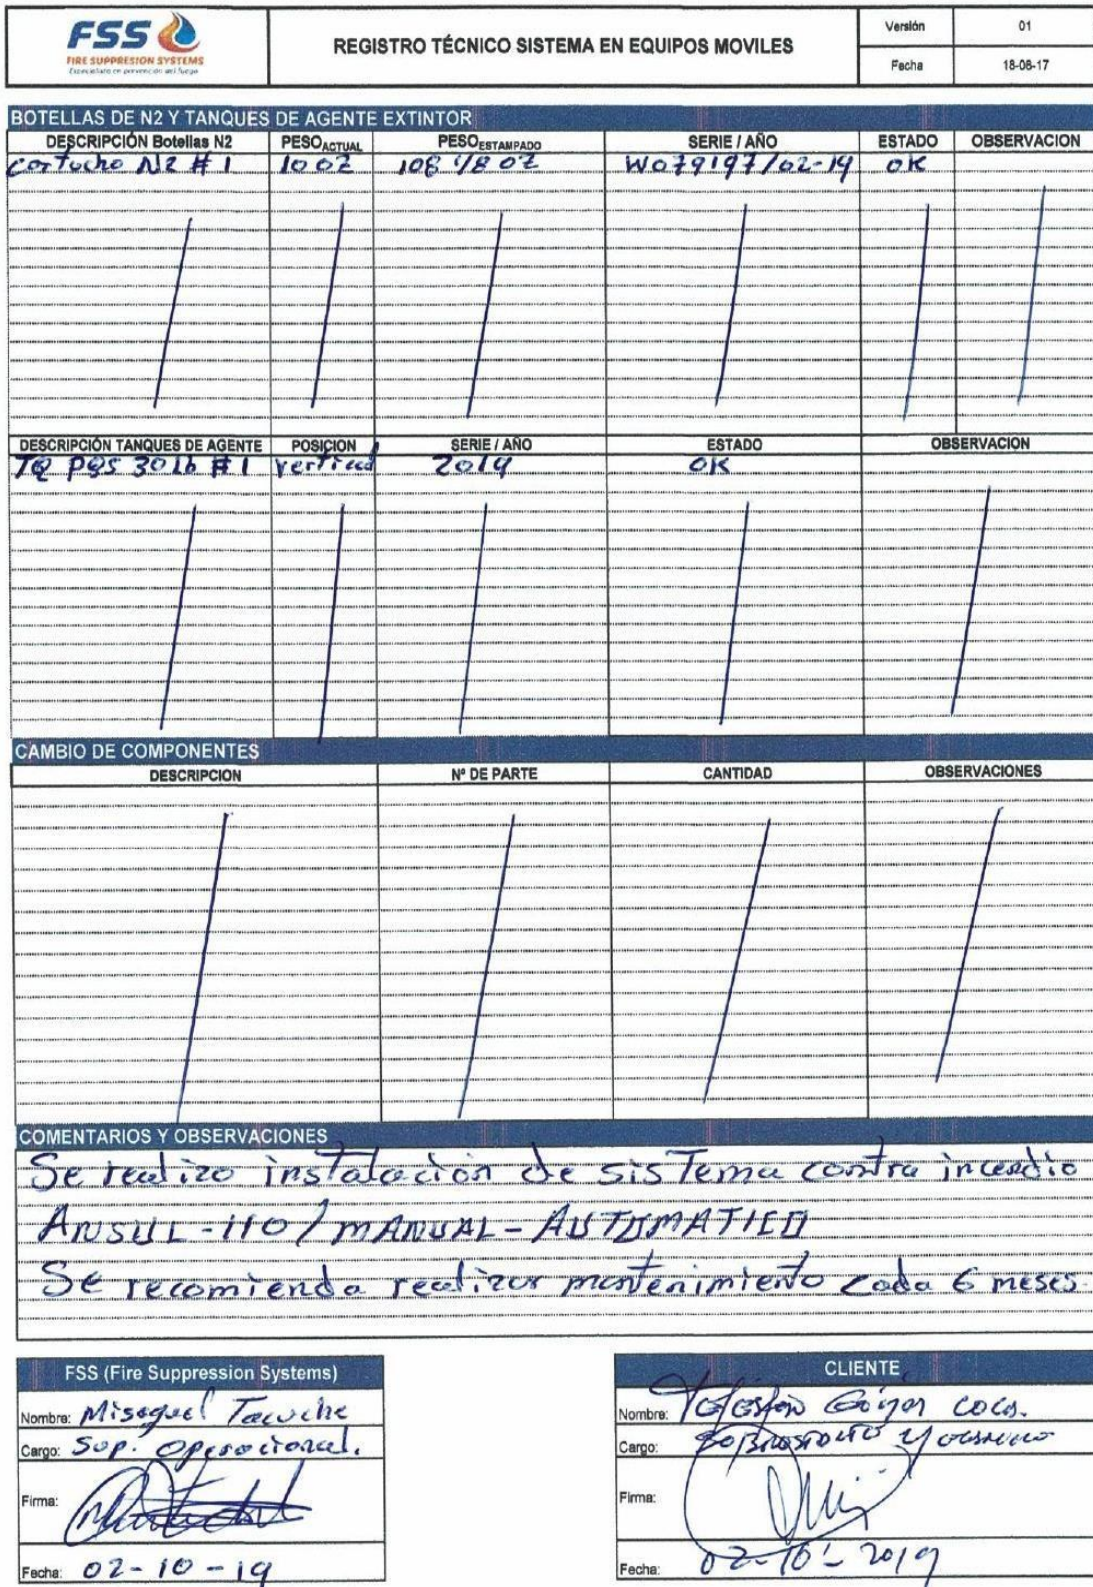 FSS
FIRE SUPPRESION SYSTEMS
Especialista en prevención del fuego
REGISTRO TÉCNICO SISTEMA EN EQUIPOS MOVILES
Versión 01
Fecha 18-08-17
BOTELLAS DE N2 Y TANQUES DE AGENTE EXTINTOR
DESCRIPCIÓN Botellas N2 PESO ACTUAL PESO ESTAMPADO SERIE / AÑO ESTADO OBSERVACION
Cartucho N2 # 1 10 OZ 108 1/8 OZ W079197/02-19 OK
DESCRIPCIÓN TANQUES DE AGENTE POSICION SERIE / AÑO ESTADO OBSERVACION
TQ PQS 30 lb # 1 vertical 2019 OK
CAMBIO DE COMPONENTES
DESCRIPCION Nº DE PARTE CANTIDAD OBSERVACIONES
COMENTARIOS Y OBSERVACIONES
Se realizo instalación de sistema contra incendio
ANSUL-110 / MANUAL - AUTOMATICO
Se recomienda realizar mantenimiento cada 6 meses.
FSS (Fire Suppression Systems)
Nombre: Misaquel Tacuche
Cargo: Sup. Operacional.
Firma:
Fecha: 02-10-19
CLIENTE
Nombre:
Cargo:
Firma:
Fecha: 02-10-2019